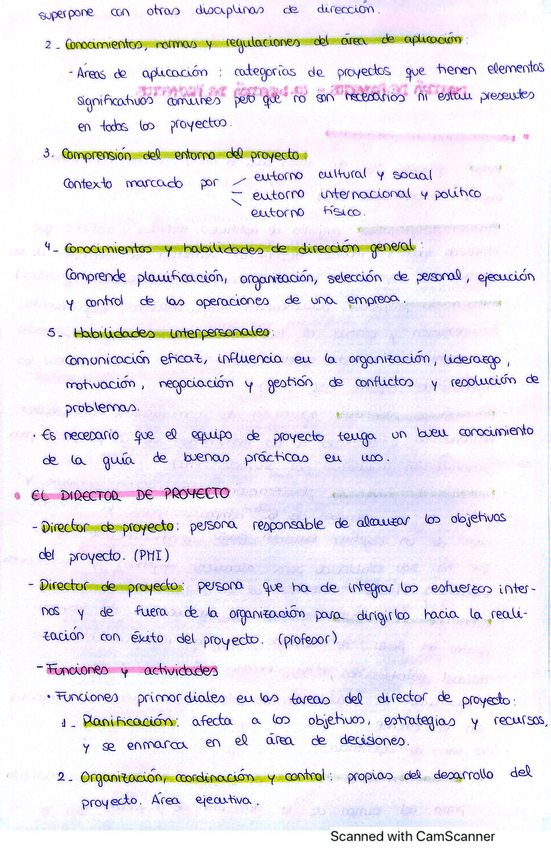 superpone con otras disciplinas de dirección.
2- Conocimientos, normas y regulaciones del área de aplicación:
- Áreas de aplicación: categorías de proyectos que tienen elementos
significativos comunes pero que no son necesarios ni están presentes
en todos los proyectos.
3- Comprensión del entorno del proyecto:
Contexto marcado por - entorno cultural y social
- entorno internacional y político
- entorno físico.
4- Conocimientos y habilidades de dirección general:
Comprende planificación, organización, selección de personal, ejecución
y control de las operaciones de una empresa.
5- Habilidades interpersonales:
Comunicación eficaz, influencia en la organización, liderazgo,
motivación, negociación y gestión de conflictos y resolución de
problemas.
· Es necesario que el equipo de proyecto tenga un buen conocimiento
de la guía de buenas prácticas en uso.
• EL DIRECTOR DE PROYECTO
- Director de proyecto: persona responsable de alcanzar los objetivos
del proyecto. (PMI)
- Director de proyecto: persona que ha de integrar los esfuerzos inter-
nos y de fuera de la organización para dirigirlos hacia la reali-
zación con éxito del proyecto. (profesor)
- Funciones y actividades
• Funciones primordiales en las tareas del director de proyecto:
1- Planificación: afecta a los objetivos, estrategias y recursos,
y se enmarca en el área de decisiones.
2- Organización, coordinación y control: propias del desarrollo del
proyecto. Área ejecutiva.
Scanned with CamScanner